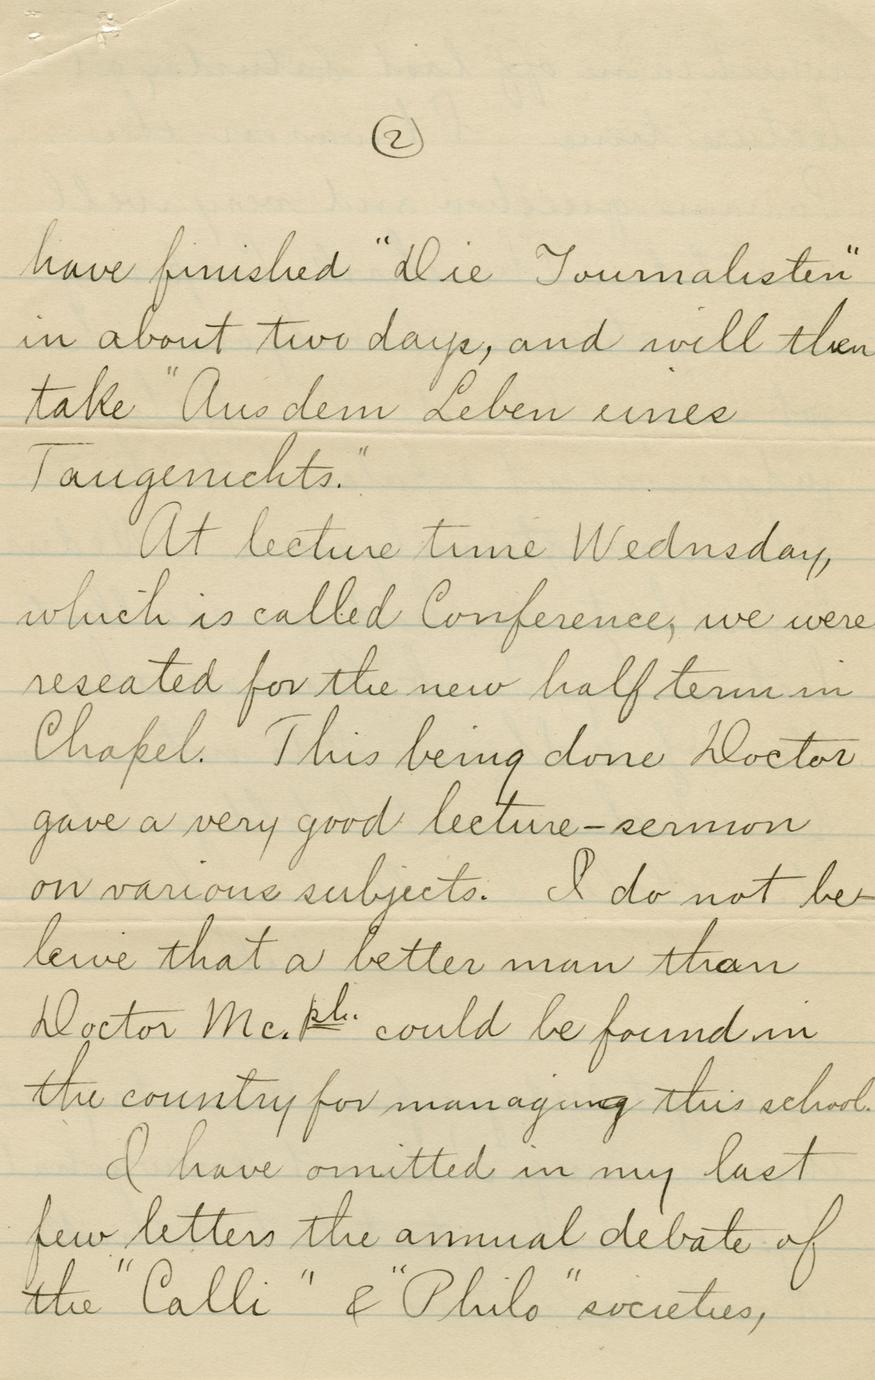 ②
have finished "Die Journalisten"
in about two days, and will then
take "Aus dem Leben eines
Taugenichts."
At lecture time Wednsday,
which is called Conference, we were
reseated for the new half term in
Chapel. This being done Doctor
gave a very good lecture-sermon
on various subjects. I do not be-
leive that a better man than
Doctor Mc. could be found in
the country for managing this school.
I have omitted in my last
few letters the annual debate of
the "Calli" & "Philo" societies,